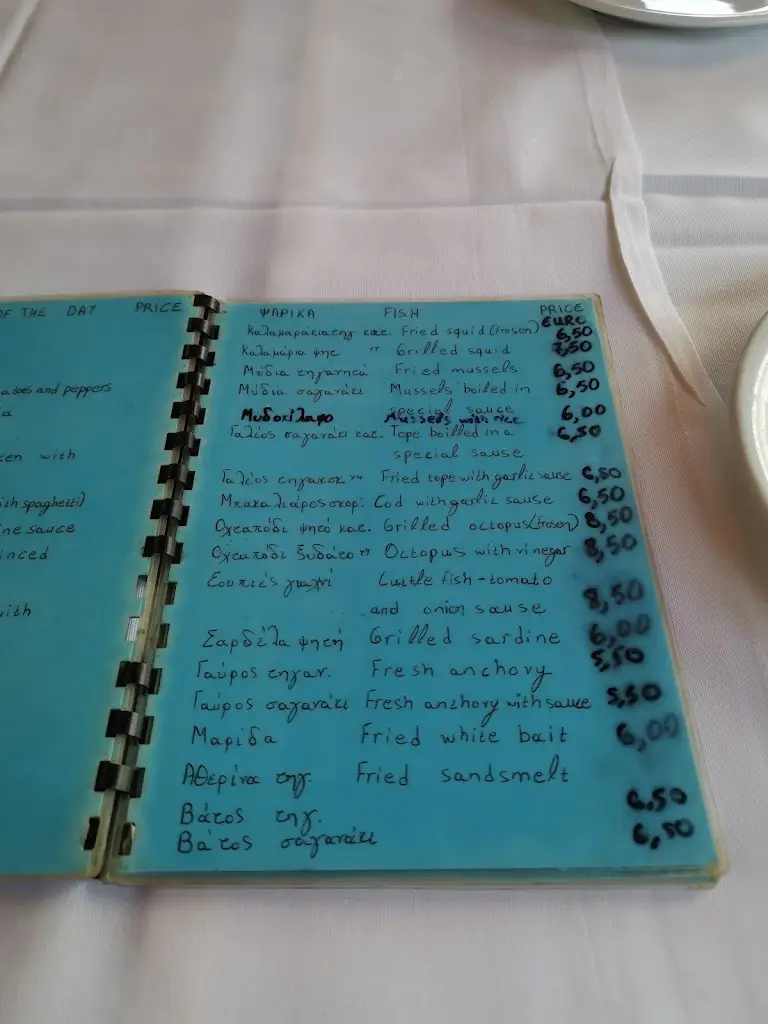 OF THE DAY PRICE
atoes and peppers
ia
ken with
ith spaghetti)
ine sauce
inced
with
ΨΑΡΙΚΑ FISH PRICE
EURO
Καλαμαράκια τηγ κατ. Fried squid (frosen) 6,50
Καλαμάρια ψητ " Grilled squid 7,50
Μύδια τηγανητά Fried mussels 6,50
Μύδια σαγανάκι Mussels boiled in 6,50
special sauce
Μυδοπίλαφο Mussels with rice 6,00
Γαλέος σαγανάκι κατ. Tope boilled in a 6,50
special sause
Γαλέος τηγ. σκορ " Fried tope with garlic sause 6,50
Μπακαλιάρος σκορ: Cod with garlic sause 6,50
Οχταπόδι ψητό κατ. Grilled octopus (frosen) 8,50
Οχταπόδι ξυδάτο " Octopus with vinegar 8,50
Σουπιές γιαχνί Cuttle fish - tomato
and onion sause 8,50
Σαρδέλα ψητή Grilled sardine 6,00
Γαύρος τηγαν. Fresh anchovy 5,50
Γαύρος σαγανάκι Fresh anchovy with sauce 5,50
Μαρίδα Fried white bait 6,00
Αθερίνα τηγ. Fried sandsmelt
Βάτος τηγ. 6,50
Βάτος σαγανάκι 6,50